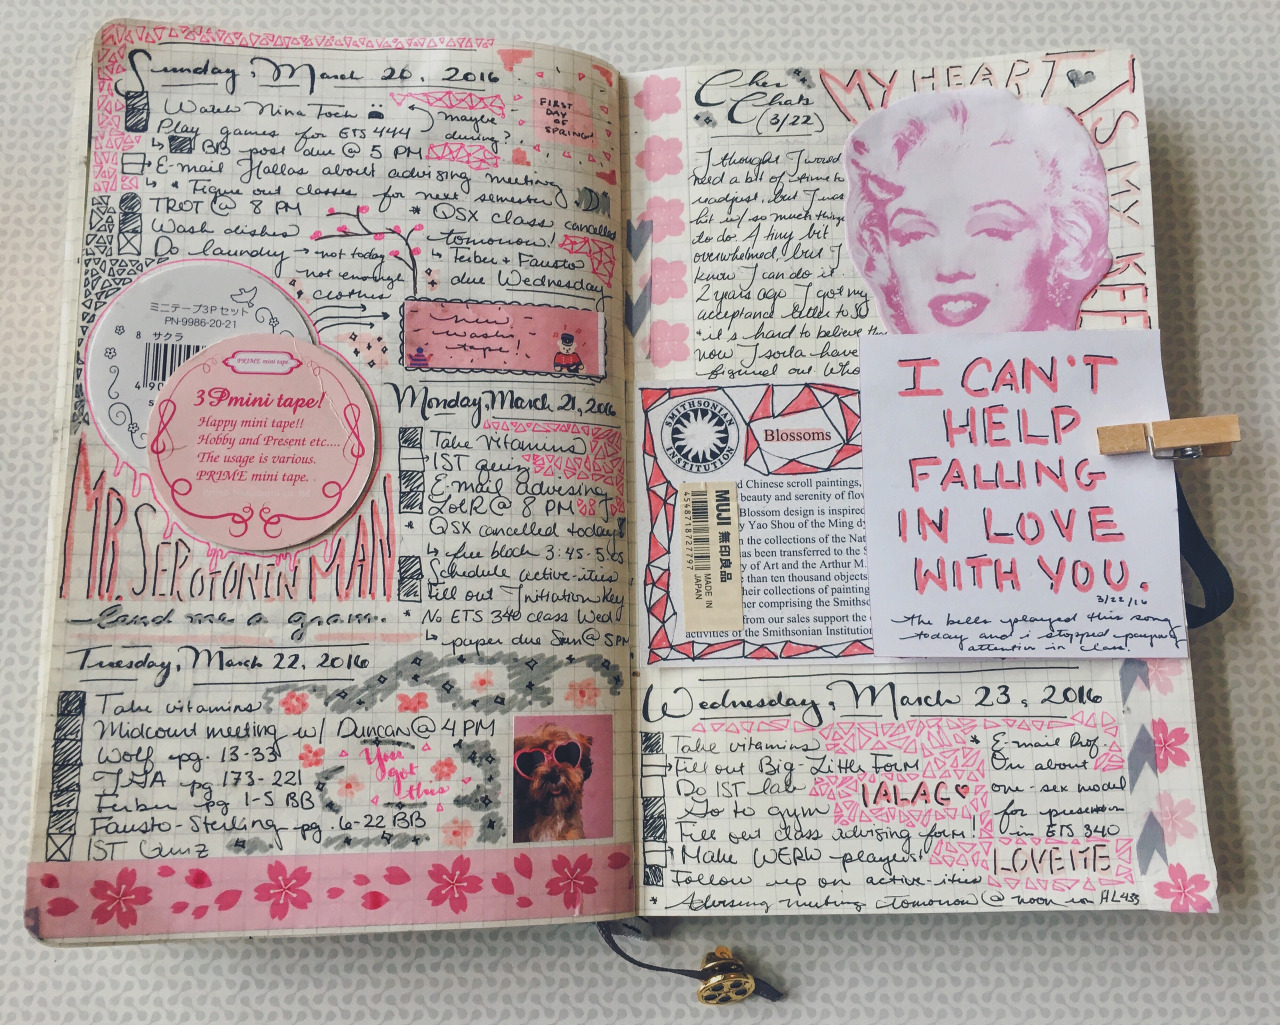 Sunday, March 20, 2016
Watch Nina Toch
maybe during?
FIRST DAY OF SPRING!
Play games for ETS 444
↳ BB post due @ 5 PM
E-mail Hallas about advising meeting
↳ * Figure out classes for next semester
TROT @ 8 PM
Wash dishes
Do laundry → not today
not enough
clothes
* QSX class cancelled
tomorrow!
↳ Feiber + Fausto
due Wednesday
ミニテープ3Pセット
PN-9986-20-21
8 サクラ
4 90
PRIME mini tape
3Pmini tape!
Happy mini tape!!
Hobby and Present etc....
The usage is various.
PRIME mini tape.
new
washi
tape!
MR. SEROTONIN MAN
Lend me a gram.
Monday, March 21, 2016
Take vitamins
IST Quiz
E-mail advising
ZoLR @ 8 PM
* QSX cancelled today
↳ free block 3:45-5:05
Schedule active-ities
Fill out Initiation Key
* No ETS 340 class Wed
↳ paper due Sun @ 5 PM
Tuesday, March 22, 2016
Take vitamins
Midcourt meeting w/ Duncan @ 4 PM
Wolf pg. 13-33
pg 173-221
Feiber pg 1-5 BB
Fausto-Sterling pg. 6-22 BB
IST Quiz
You
got
this
Cher
Chats
(3/22)
MY HEART IS MY KEE
I thought I would
need a bit of time to
readjust, but I was
hit w/ so much things
to do. A tiny bit
overwhelmed, but I
know I can do it.
2 years ago I got my
acceptance letter to SU
* it's hard to believe tha
now I sorta have
figured out. Who
SMITHSONIAN INSTITUTION
Blossoms
d Chinese scroll paintings,
beauty and serenity of flov
Blossom design is inspired
y Yao Shou of the Ming dy
n the collections of the Nat
as been transferred to the S
y of Art and the Arthur M.
e than ten thousand objects
heir collections of painting
her comprising the Smithso
from our sales support the
activities of the Smithsonian Institution
MUJI 無印良品
MADE IN JAPAN
4548718727797
I CAN'T
HELP
FALLING
IN LOVE
WITH YOU.
3/22/16
the bells played this song
today and i stopped paying
attention in class.
Wednesday, March 23, 2016
Take vitamins
Fill out Big-Little Form
Do IST lab
Go to gym
Fill out class advising form!
Make WERW playlist
Follow up on active-ities
* Advising meeting tomorrow @ noon in HL 433
IALAG♥
* E-mail Prof.
On about
one-sex model
for presentation
in ETS 340
LOVE ME